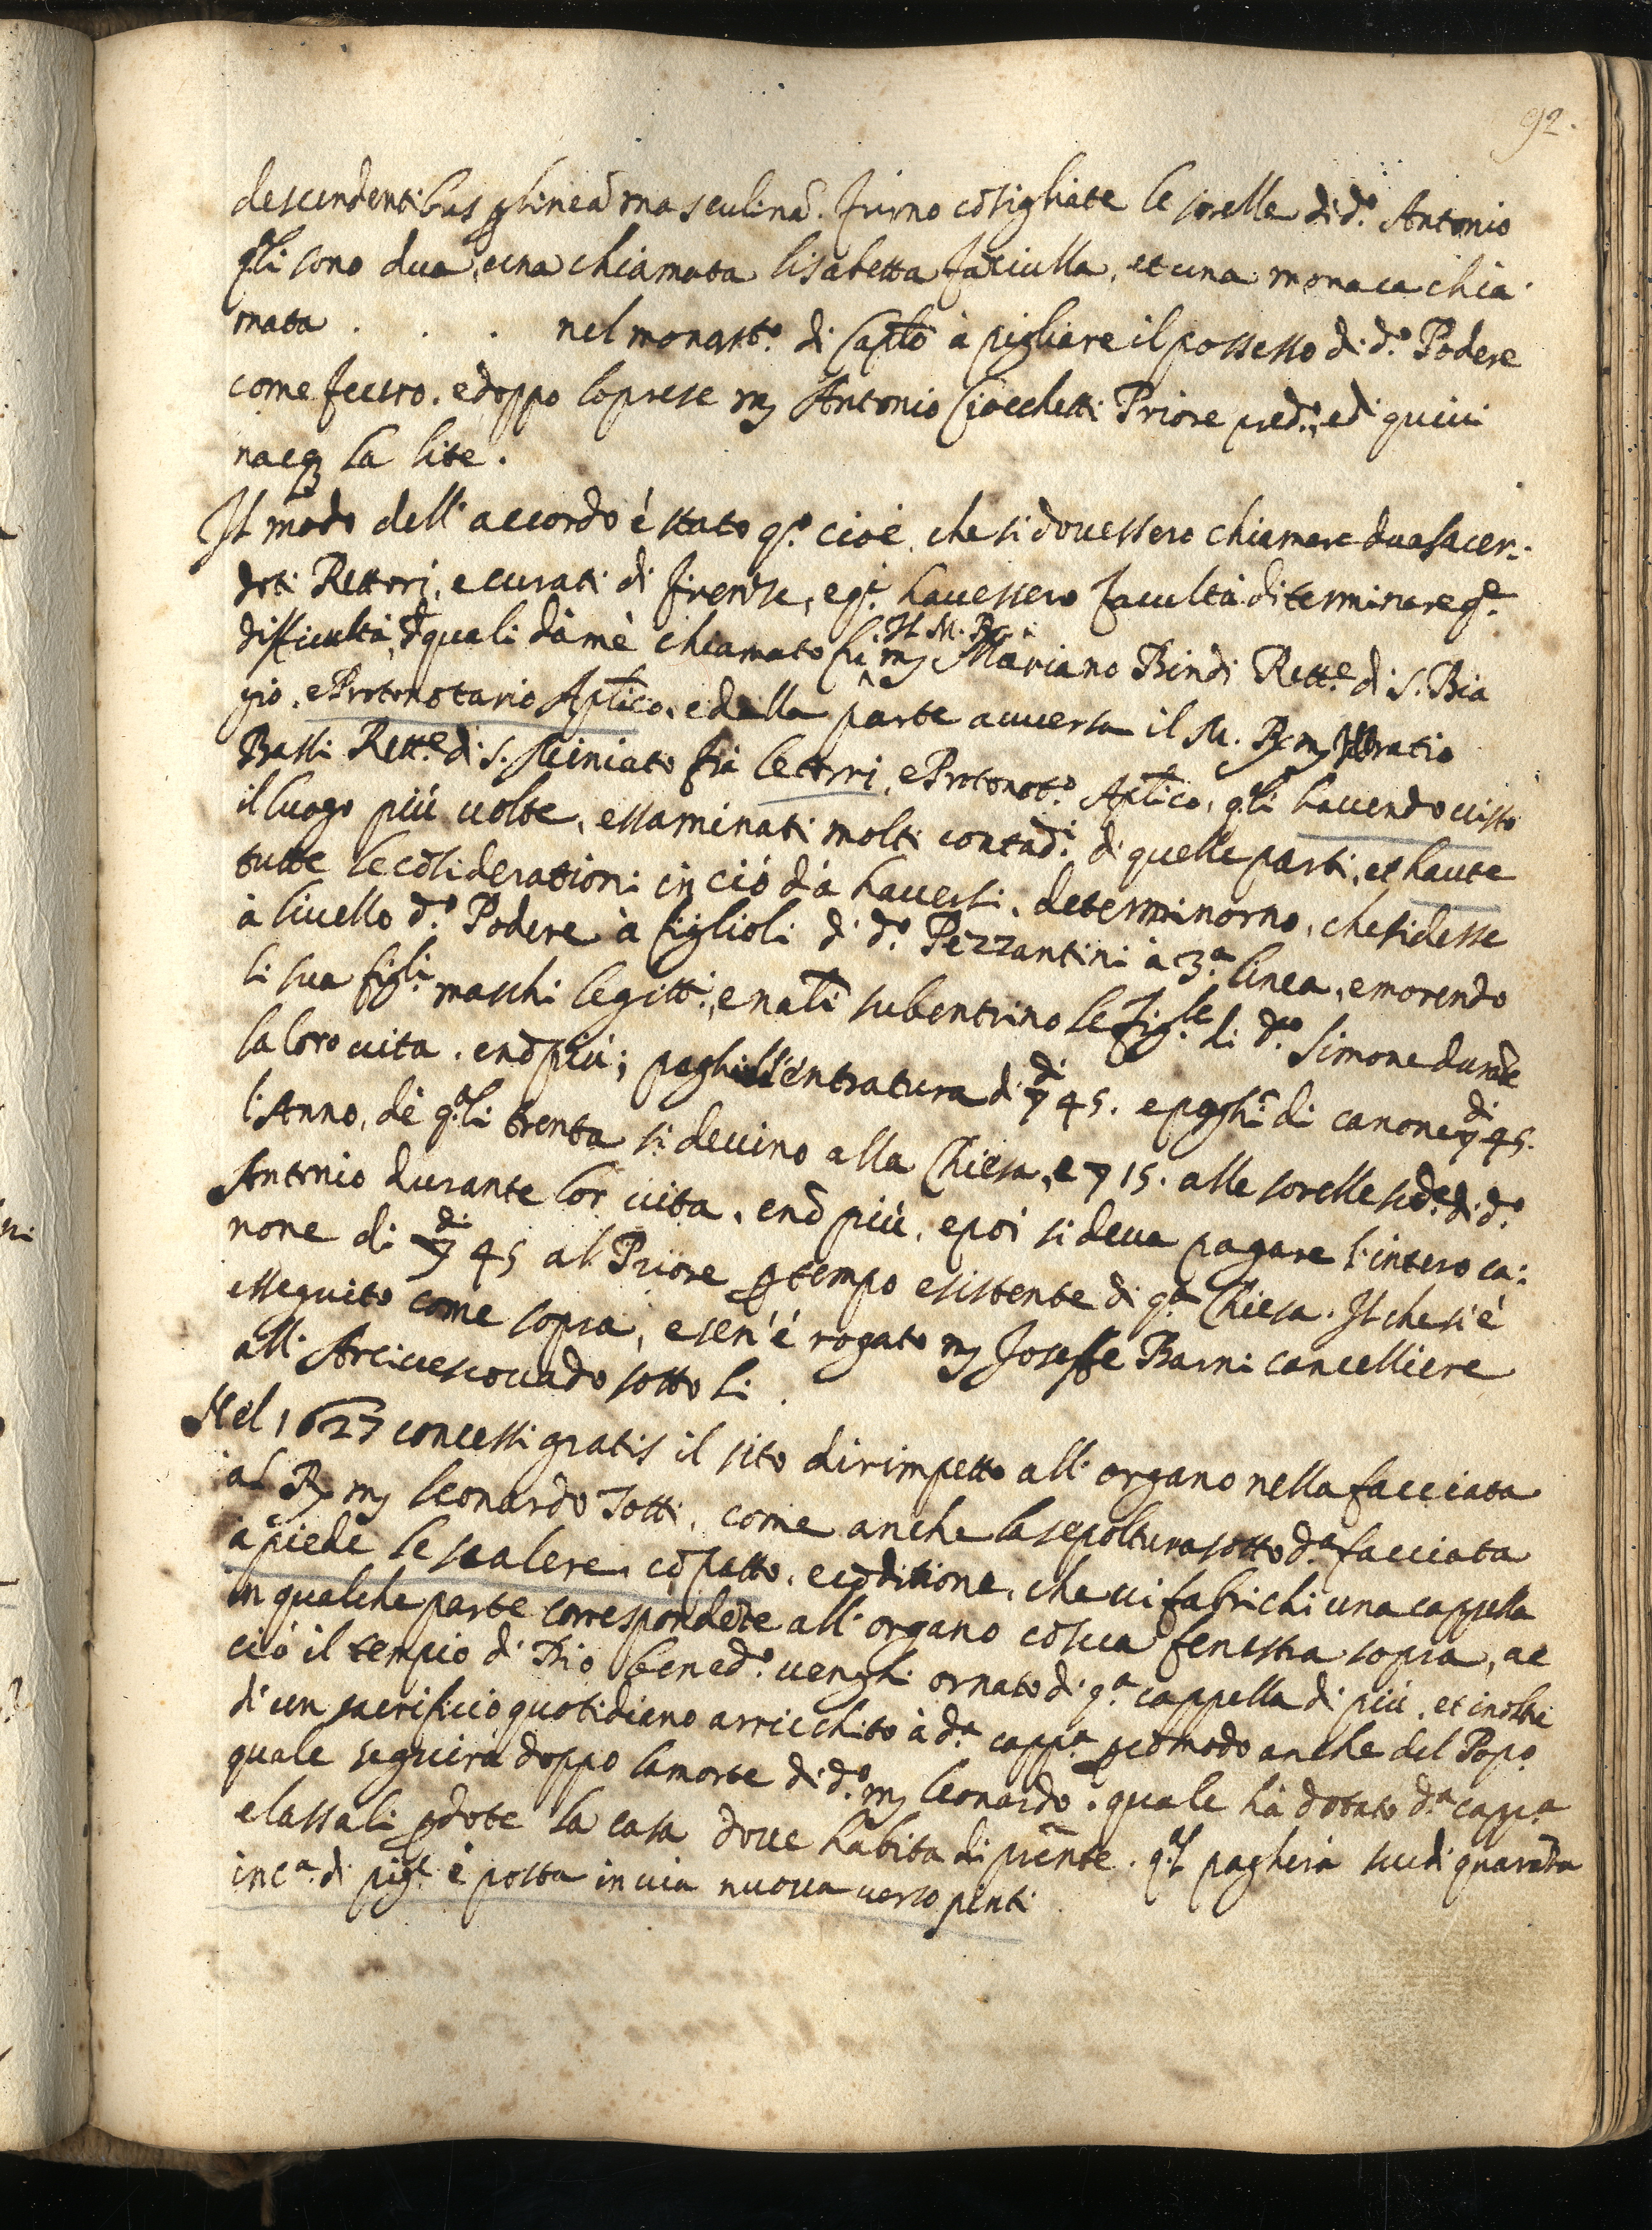 92.
descendentibus p linea masculina. furno cōsigliate le sorelle di d.º Antonio
q.li sono dua, una chiamata lisabetta fāciulla, et una monaca chia-
mata . . . nel monast.º di Capłō à pigliare il possesso di d.º Podere
come fecero. e doppo lo prese m̃ Antonio Ciocchetti Priore pred.º, e di quivi
nacq; la lite.
Il modo dell'accordo è stato q.º cioè, che si dovessero chiamare dua sacer-
doti Rettori, e curati di firenze, e q.i havessero facultà di terminare q.a
difficultà, d quali da mè chiamato fù m̃ Mariano Bindi Rett.e di S. Bia
Il M. R.
gio, e Protonotario Apłico, e dalla parte avversa il M. R. m̃ Horatio
Bassi Rett.e di S. Miniato frà le torri, e Protonot.º Apłico, q.li havendo visto
il luogo più volte, essaminati molti contad.i di quelle parti, et havute
tutte le cōsiderationi in ciò dà haversi, determinorno, che si desse
à livello d.º Podere à figlioli di d.º Pezzantini à 3.a linea, e morendo
li sua figli maschi legitt.i, e natłi subentrino le fig.le di d.º Simone durāte
la loro vita, e nō più; paghi l'entratura di ∇ di 45. e paghi di canone ∇ di 45.
l'Anno, dè q.li trenta si devino alla Chiesa, e ∇ 15. alle sorelle sud.e di d.º
Antonio durante lor vita, e nō più, e poi si deva pagare l'intero ca-
none di ∇ di 45 al Priore p tempo esistente di q.a Chiesa. Il che si è
esseguito come sopra, e sen'è rogato m̃ Joseffe Barni cancelliere
all'Arcivescovado sotto li .
Nel 1627 concessi gratis il sito dirimpetto all'organo nella facciata
al R. m̃ Leonardo Totti, come anche la sepoltura sotto d.a facciata
à piede le scalere, cō patto, e cōditione, che vi fabrichi una cappella
in qualche parte correspondēte all'organo cō sua fenestra sopra, ac
ciò il tempio di Dio bened.º venghi ornato di q.a cappella di più, et inoltre
di un sacrificio quotidiano arricchito à d.a capp.a p cōmodo anche del Pop.º
quale seguirà doppo la morte di d.º m̃ Leonardo. quale hà dotato d.a capp.a
e lassali p dote la casa dove habita di pñte. q.l pagherà scudi quarāta
in c.a di pig.e è posta in via nuova verso pinti